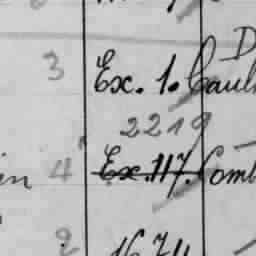 3 Ex. 1.
2219
in 4 Ex. 117. Comb
2 1674